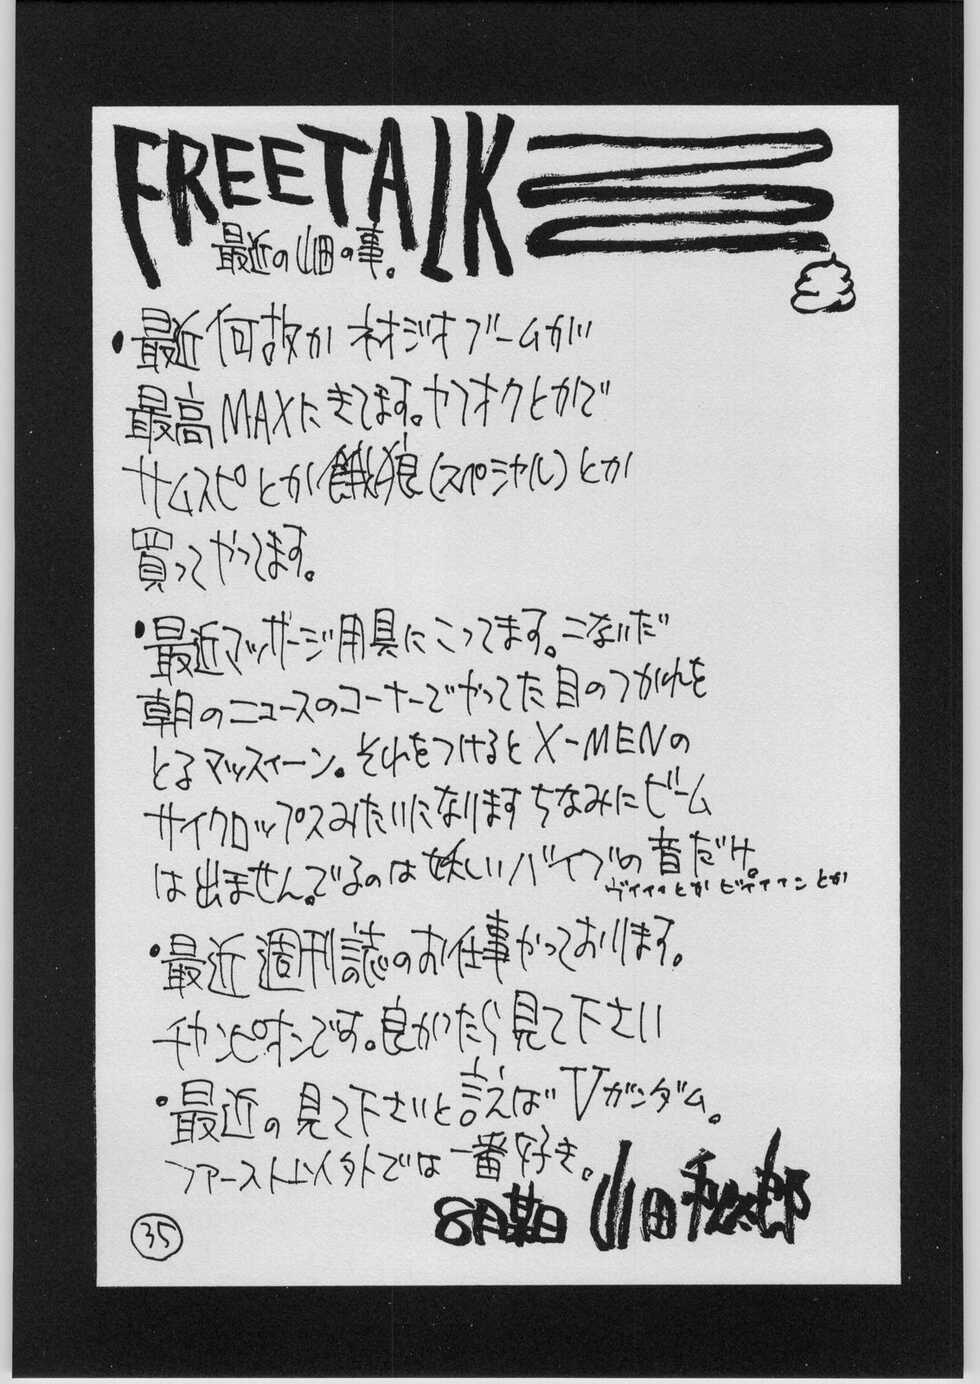 FREETALK
最近の山田の事。
・最近何故かネオジオブームが
最高MAXにきてます。ヤフオクとかで
サムスピとか餓狼(スペシャル)とか
買ってやってます。
・最近マッサージ用具にこってます。こないだ
朝のニュースのコーナーでやってた目のつかれを
とるマッスィーン。それをつけるとX-MENの
サイクロップスみたいになりますちなみにビーム
は出ませんでるのは妖しいバイブの音だけ。
ヴィィィとかビティィンとか
・最近週刊誌のお仕事やっております。
チャンピオンです。良かたら見て下さい
・最近の見て下さいと言えばVガンダム。
ファースト以外では一番好き。
8月某日 山田秋太郎
35